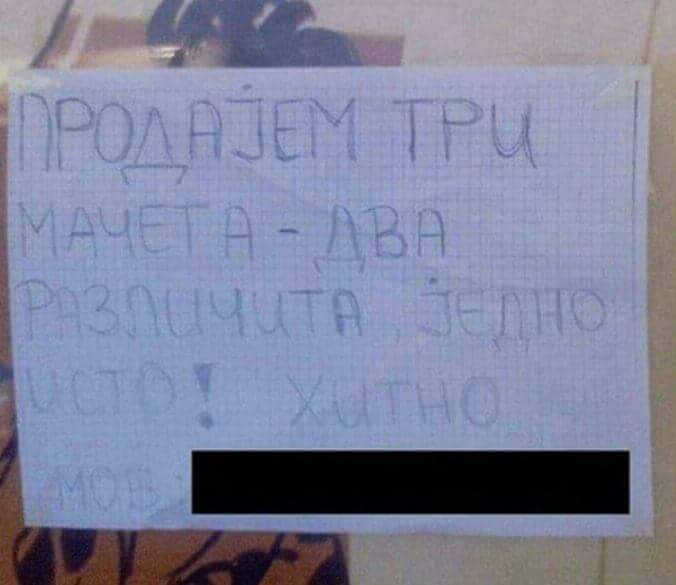 ПРОДАЈЕМ ТРИ
МАЧЕТА - ДВА
РАЗЛИЧИТА, ЈЕДНО
ИСТО! ХИТНО
МОБ: